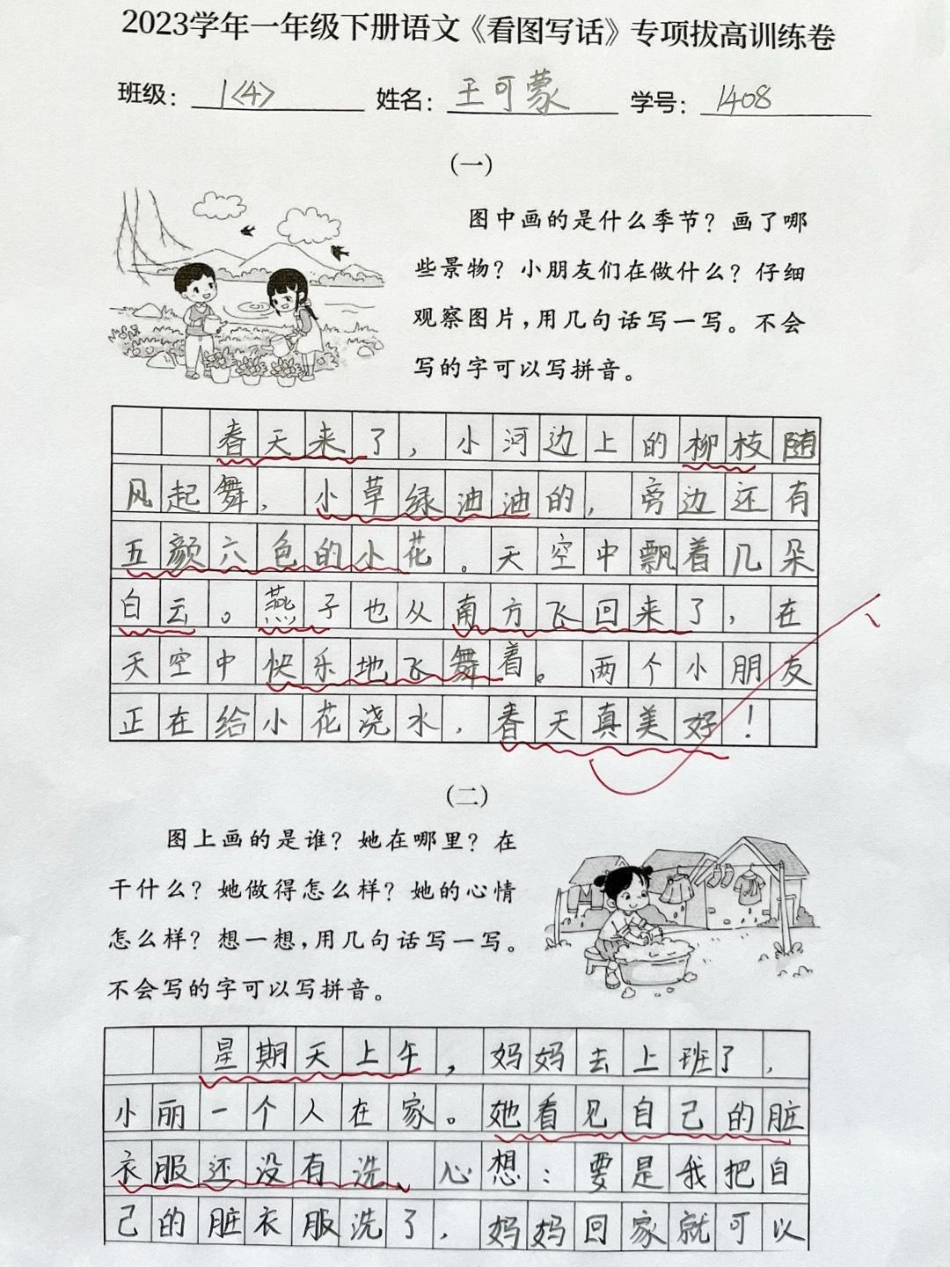 2023学年一年级下册语文《看图写话》专项拔高训练卷
班级：1<4> 姓名：王可蒙 学号：1408
（一）
图中画的是什么季节？画了哪
些景物？小朋友们在做什么？仔细
观察图片，用几句话写一写。不会
写的字可以写拼音。
春天来了，小河边上的柳枝随
风起舞，小草绿油油的，旁边还有
五颜六色的小花。天空中飘着几朵
白云。燕子也从南方飞回来了，在
天空中快乐地飞舞着。两个小朋友
正在给小花浇水，春天真美好！
（二）
图上画的是谁？她在哪里？在
干什么？她做得怎么样？她的心情
怎么样？想一想，用几句话写一写。
不会写的字可以写拼音。
星期天上午，妈妈去上班了，
小丽一个人在家。她看见自己的脏
衣服还没有洗、心想：要是我把自
己的脏衣服洗了，妈妈回家就可以